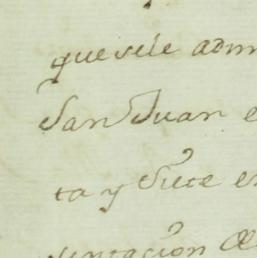 que se le adm
San Juan e
ta y Siete e
sentacion de